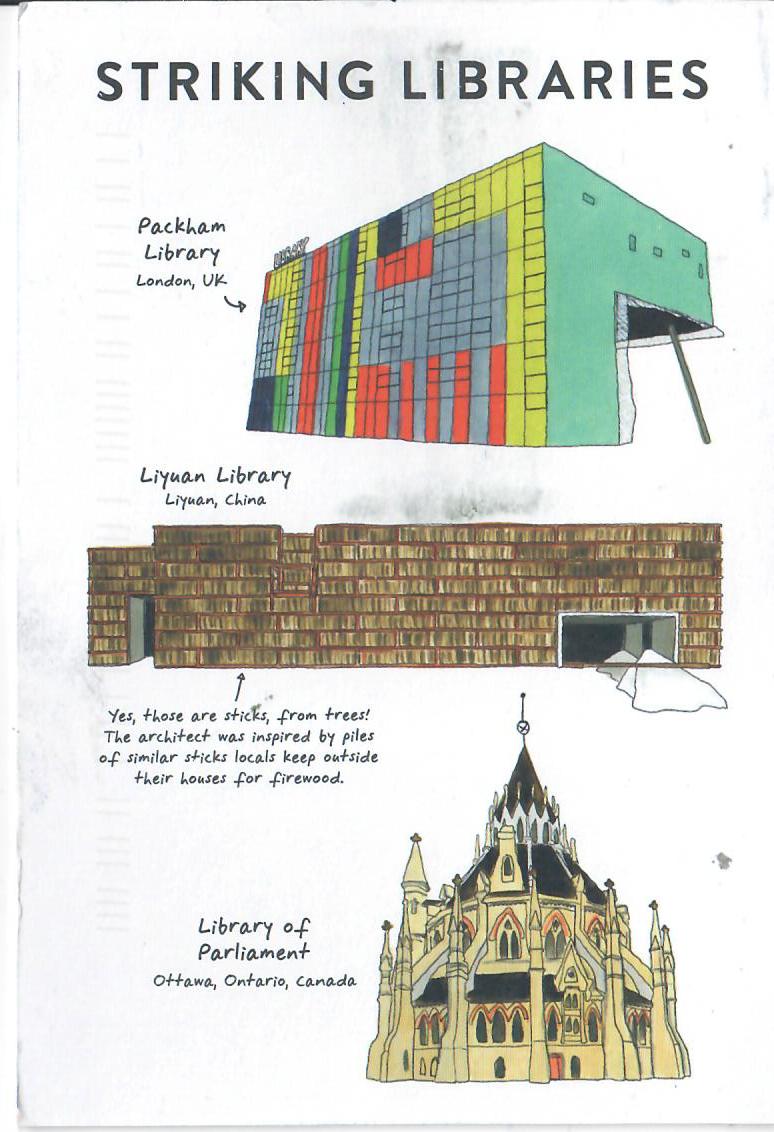 STRIKING LIBRARIES
Packham
Library
London, UK
LIBRARY
Liyuan Library
Liyuan, China
Yes, those are sticks, from trees!
The architect was inspired by piles
of similar sticks locals keep outside
their houses for firewood.
Library of
Parliament
Ottawa, Ontario, Canada